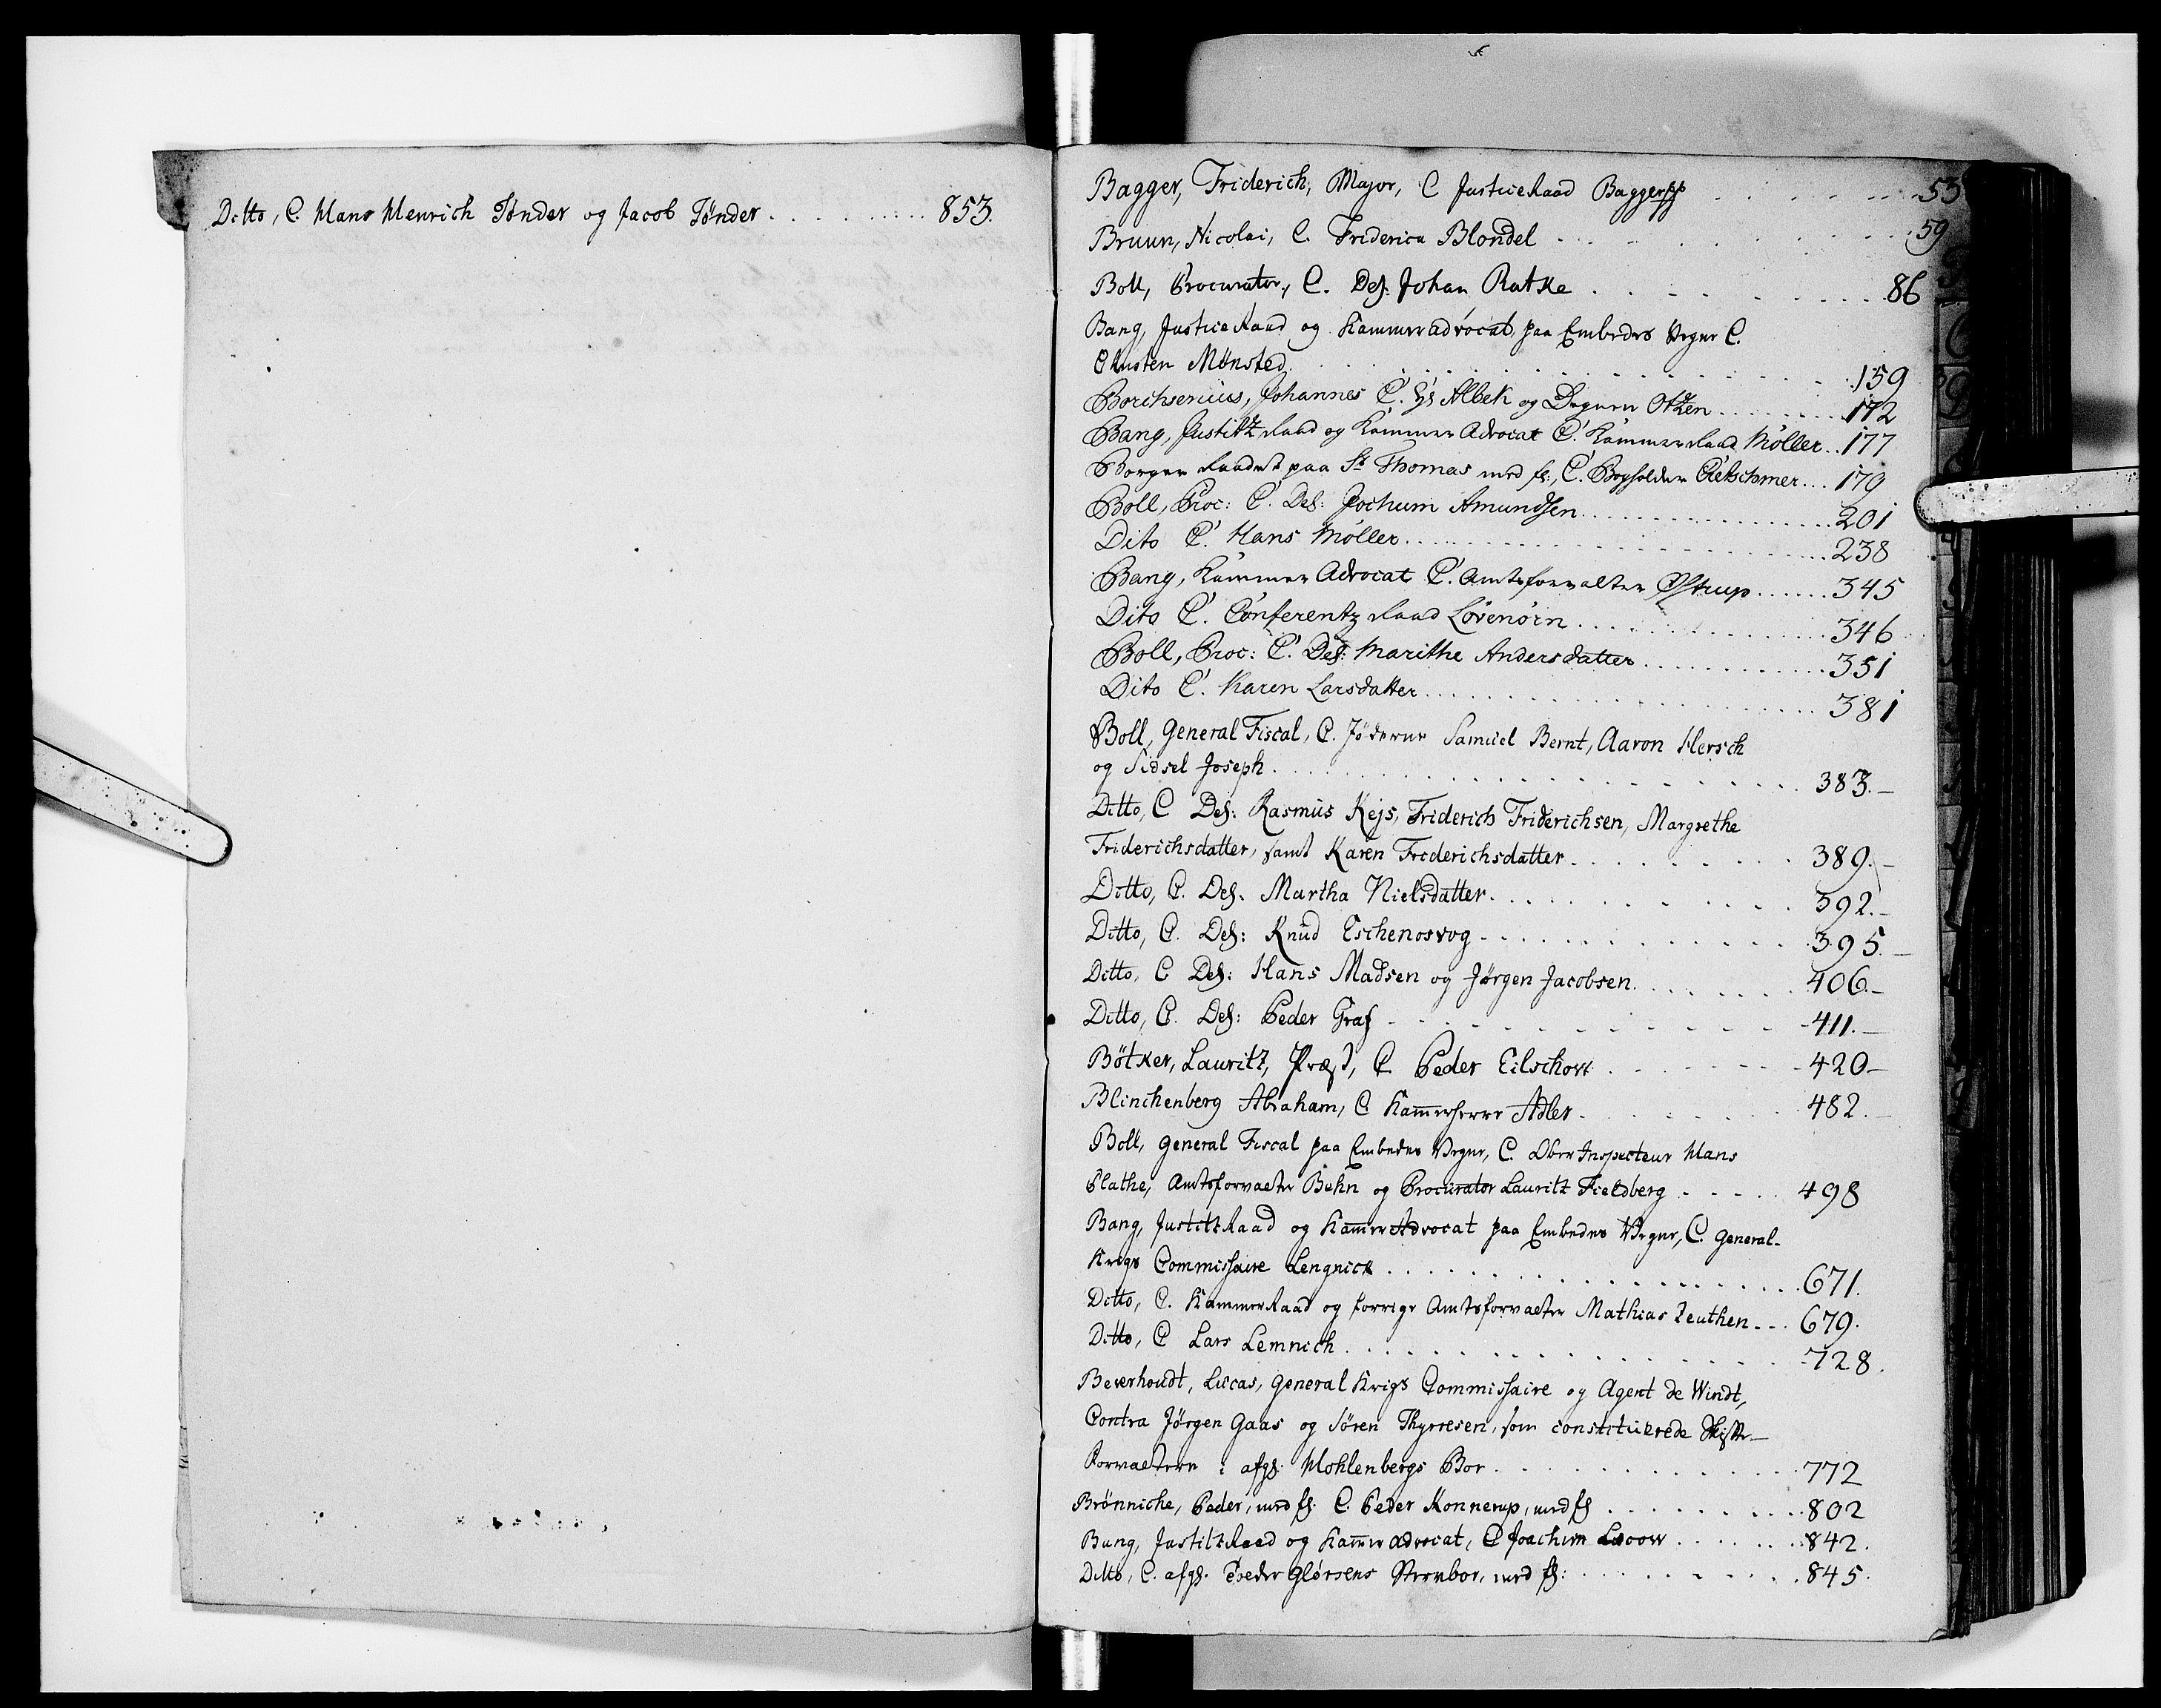 Ditto, C. Hans Henrich Tønder og Jacob Tønder . . . . . . . . . . 853.
Bagger, Friderich, Major, C JusticeRaad Bagger . . . . . . . 53
Bruun, Nicolai, C. Friderica Blondel . . . . . . . . . . 59
Boll, Procurator, C. Def: Johan Ratke . . . . . . . . . 86
Bang, JusticeRaad og Kammeradvocat paa Embedes Vegne C.
Christen Mønsted . . . . . . . . . . . . 159
Borchsenius, Johannes C. Albek og Otzen . . . . . . . . 172
Bang, JustitzRaad og Kammer Advocat C. KammerRaad Möller . . 177
Borger Raadet paa St Thomas med fl:, C. Bogholder Cretschmer . . . 179
Boll, Proc: C. Def: Jochum Amundsen . . . . . . . . . . . 201
Dito C. Hans Möller . . . . . . . . . . . . . . 238
Bang, Kammer Advocat C. Amtsforvalter Østrup . . . . . . 345
Dito C. Conferentz Raad Lövenörn . . . . . . . . . . 346
Boll, Proc: C. Def: Marithe Andersdatter . . . . . . . . . . 351
Dito C. Karen Larsdatter . . . . . . . . . . . . . . 381
Boll, General Fiscal, C. Jöderne Samuel Bernt, Aaron Hersch
og Sidsel Joseph . . . . . . . . . . . . . . 383.-
Ditto, C Def: Rasmus Kejs, Friderich Friderichsen, Margrethe
Friderichsdatter, samt Karen Frederichsdatter . . . . . . . 389.-
Ditto, C. Def. Martha Nielsdatter . . . . . . . . . . 392.-
Ditto, C. Def: Knud Eschenosvog . . . . . . . . . . 395.-
Ditto, C Def: Hans Madsen og Jørgen Jacobsen . . . . . . 406.-
Ditto, C. Def: Peder Graf . . . . . . . . . . . . 411.-
Bötker, Lauritz, Præst, C. Peder Eilschow . . . . . . . 420-
Blinchenberg Abraham, C Kammerherre Adler . . . . . . . 482.-
Boll, General Fiscal paa Embedes Vegne, C. Ober Inspecteur Hans
Plathe, Amtsforvalter Behn og Procurator Lauritz Fieldberg . . . . . 498
Bang, JustitzRaad og KammerAdvocat paa Embedes Vegne, C. General-
Krigs Commissaire Lengnick . . . . . . . . . . . . 671.
Ditto, C. KammerRaad og forrige Amtsforvalter Mathias Zeuthen . . . 679.
Ditto, C Lars Lemnich . . . . . . . . . . . . . . 728.
Beverhoudt, Lucas, General Krigs Commissaire og Agent de Windt,
Contra Jörgen Gaas og Sören Thyrresen, som constituerede Skifte-
Forvaltere i afg: Mohlenbergs Boe . . . . . . . . . . . 772
Brönniche, Peder, med fl. C. Peder Konnerup, med fl . . . . . . . 802
Bang, JustitzRaad og Kammeradvocat, C Joachim . . . . . . . 842.
Ditto, C. afg. Peder Glørsens Stervboe, med fl: . . . . . . . . 845.